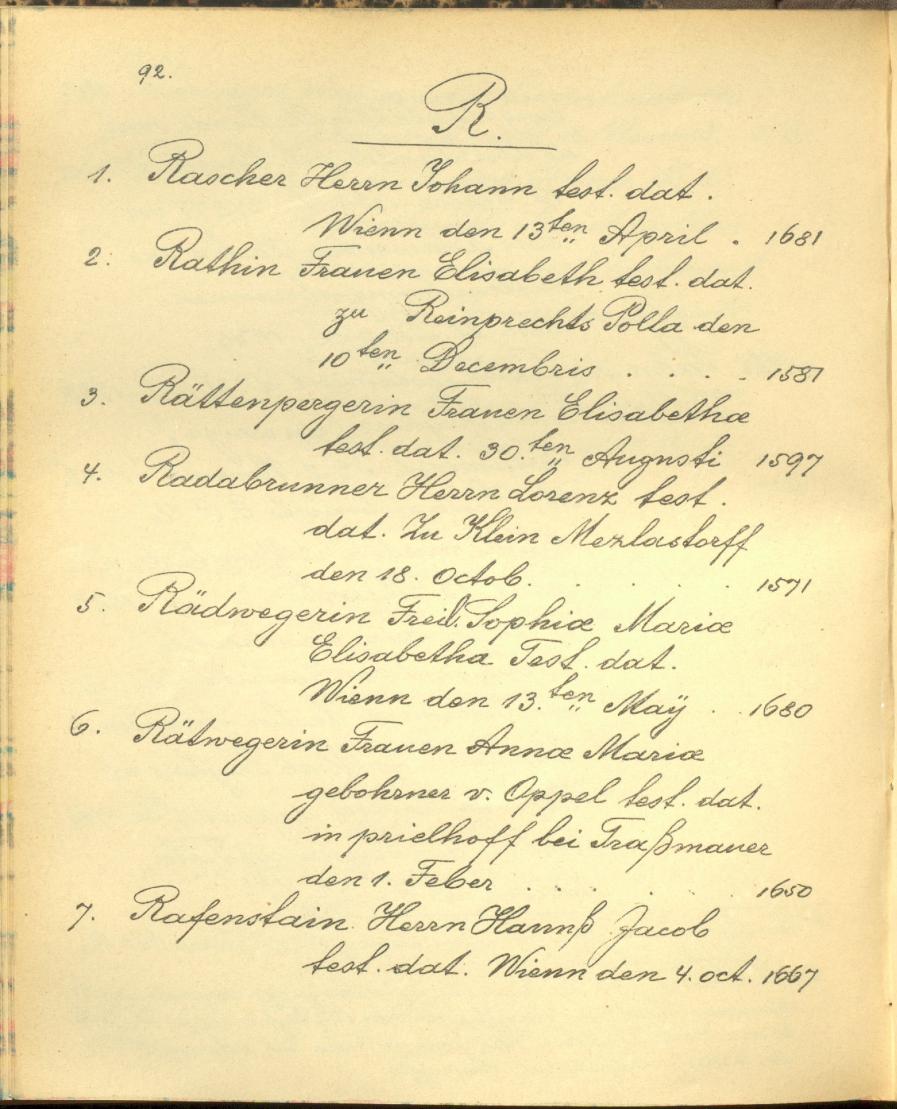 92.
R.
1. Rascher Herrn Johann test. dat.
Wienn den 13ten April . 1681
2. Rathin Frauen Elisabeth test. dat.
zu Reinprechts Polla den
10ten Decembris . . . . 1581
3. Rättenpergerin Frauen Elisabethæ
test. dat. 30.ten Augusti 1597
4. Radabrunner Herrn Lorenz test.
dat. Zu Klein Mezlastorff
den 18. Octob. . . . . 1571
5. Rädwegerin Freil. Sophiæ Mariæ
Elisabetha Test. dat.
Wienn den 13.ten Maÿ . . 1680
6. Rätwegerin Frauen Annæ Mariæ
gebohrner v. Oppel test. dat.
in prielhoff bei Traßmauer
den 1. Feber . . . . . 1650
7. Rafenstain Herrn Hannß Jacob
test. dat. Wienn den 4. oct. 1667